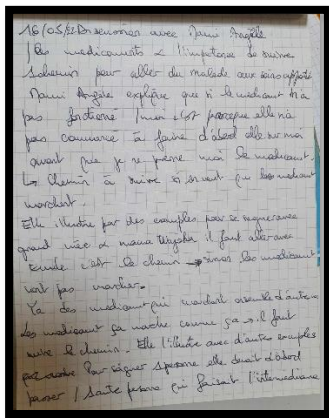 16/05/22 Discussion avec Mami Angèle
/ les medicaments & l'importance de suivre
schemin pour aller du malade aux soins apporté
Mami Angèle explique que si le medicament n'a
pas fonctioné / moi c'est parceque elle n'a
pas commencé à faire d'abord elle sur moi
avant que je ne prenne moi le medicament.
Le chemin à suivre si on veut que les medicament
marchent.
Elle illustre par des exemples pour se soigner avec
grand mère & mama il faut aller avec
c'est le chemin → sinon les medicament
vont pas marcher.
Ya des medicament qui marchent ensemble d'autres
Les medicament ça marche comme ça → il faut
suivre le chemin. Elle l'illustre avec d'autres exemples
Pour soigner 1 personne elle devait d'abord
passer / 1 autre personne qui faisait l'intermédiaire